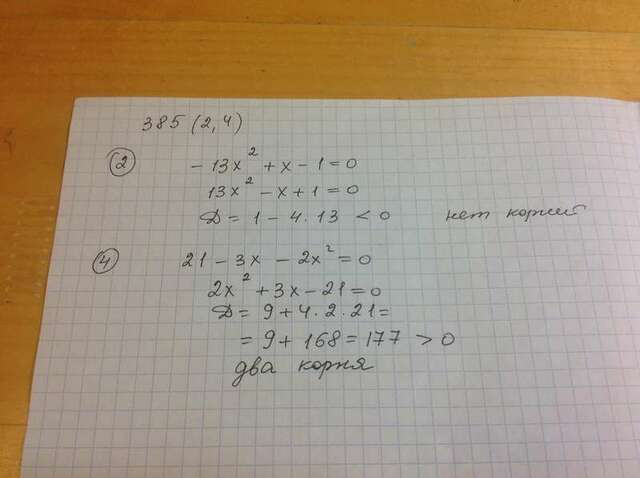 385 (2,4)
② -13x² + x - 1 = 0
13x² - x + 1 = 0
D = 1 - 4·13 < 0 нет корней
④ 21 - 3x - 2x² = 0
2x² + 3x - 21 = 0
D = 9 + 4·2·21 =
= 9 + 168 = 177 > 0
два корня